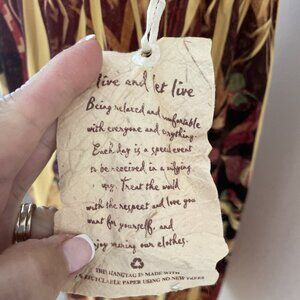 live and let live
Being relaxed and comfortable
with everyone and everything.
Each day is a special event
to be received in a unifying
way. Treat the world
with the respect and love you
want for yourself, and
enjoy wearing our clothes.
THIS HANGTAG IS MADE WITH
RECYCLABLE PAPER USING NO NEW TREES